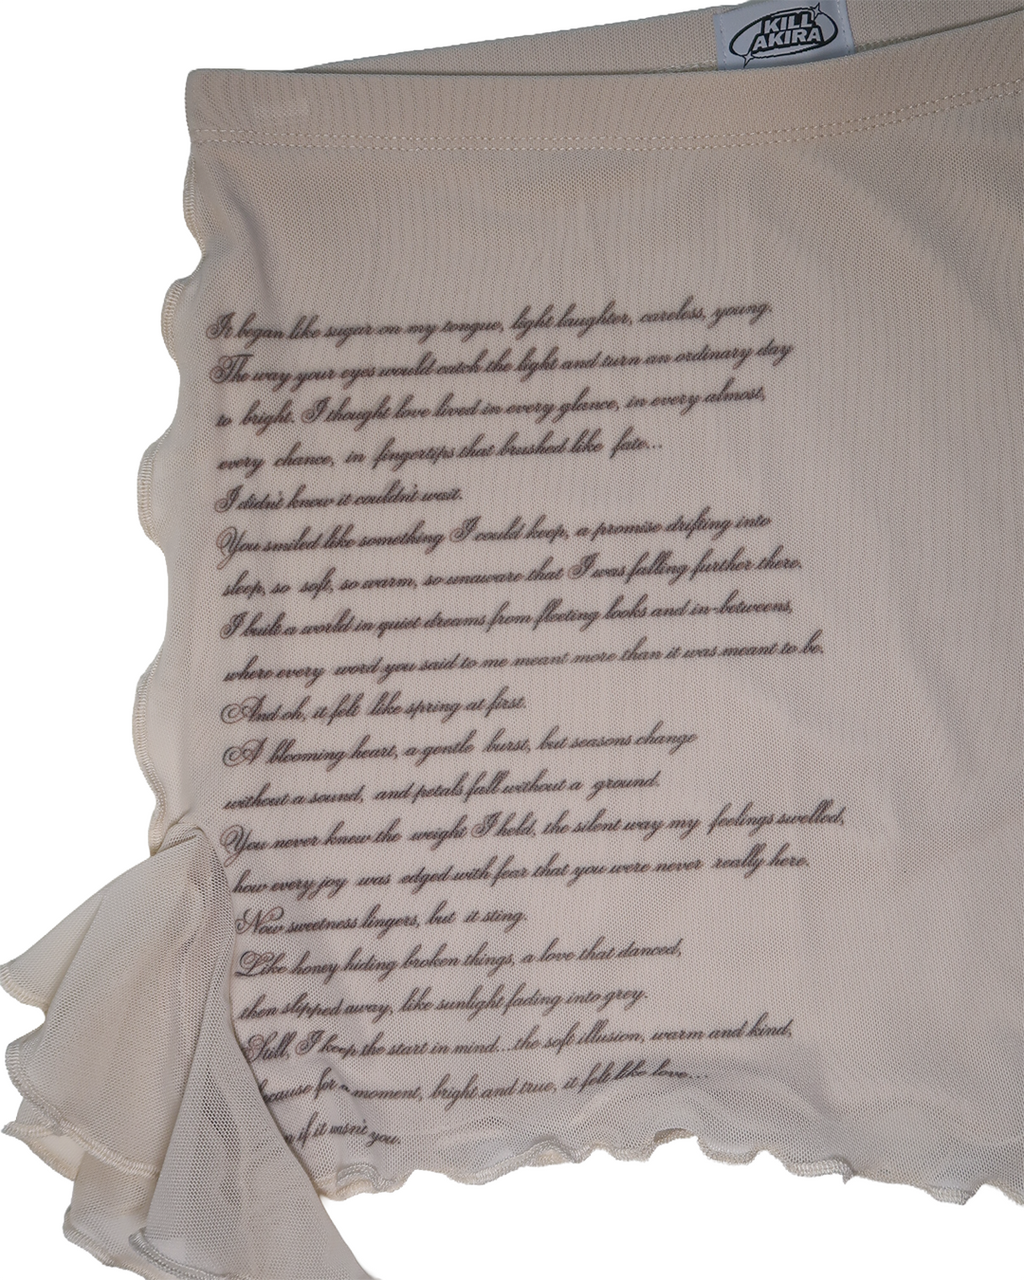 KILL
AKIRA
It began like sugar on my tongue, light laughter, careless, young.
The way your eyes would catch the light and turn an ordinary day
to bright. I thought love lived in every glance, in every almost,
every chance, in fingertips that brushed like fate...
I didn't know it couldn't wait.
You smiled like something I could keep, a promise drifting into
sleep, so soft, so warm, so unaware that I was falling further there.
I built a world in quiet dreams from fleeting looks and in-betweens,
where every word you said to me meant more than it was meant to be.
And oh, it felt like spring at first.
A blooming heart, a gentle burst, but seasons change
without a sound, and petals fall without a ground.
You never knew the weight I held, the silent way my feelings swelled,
how every joy was edged with fear that you were never really here.
Now sweetness lingers, but it sting.
Like honey hiding broken things, a love that danced,
then slipped away, like sunlight fading into grey.
Still, I keep the start in mind...the soft illusion, warm and kind,
because for a moment, bright and true, it felt like love...
if it wasn't you.